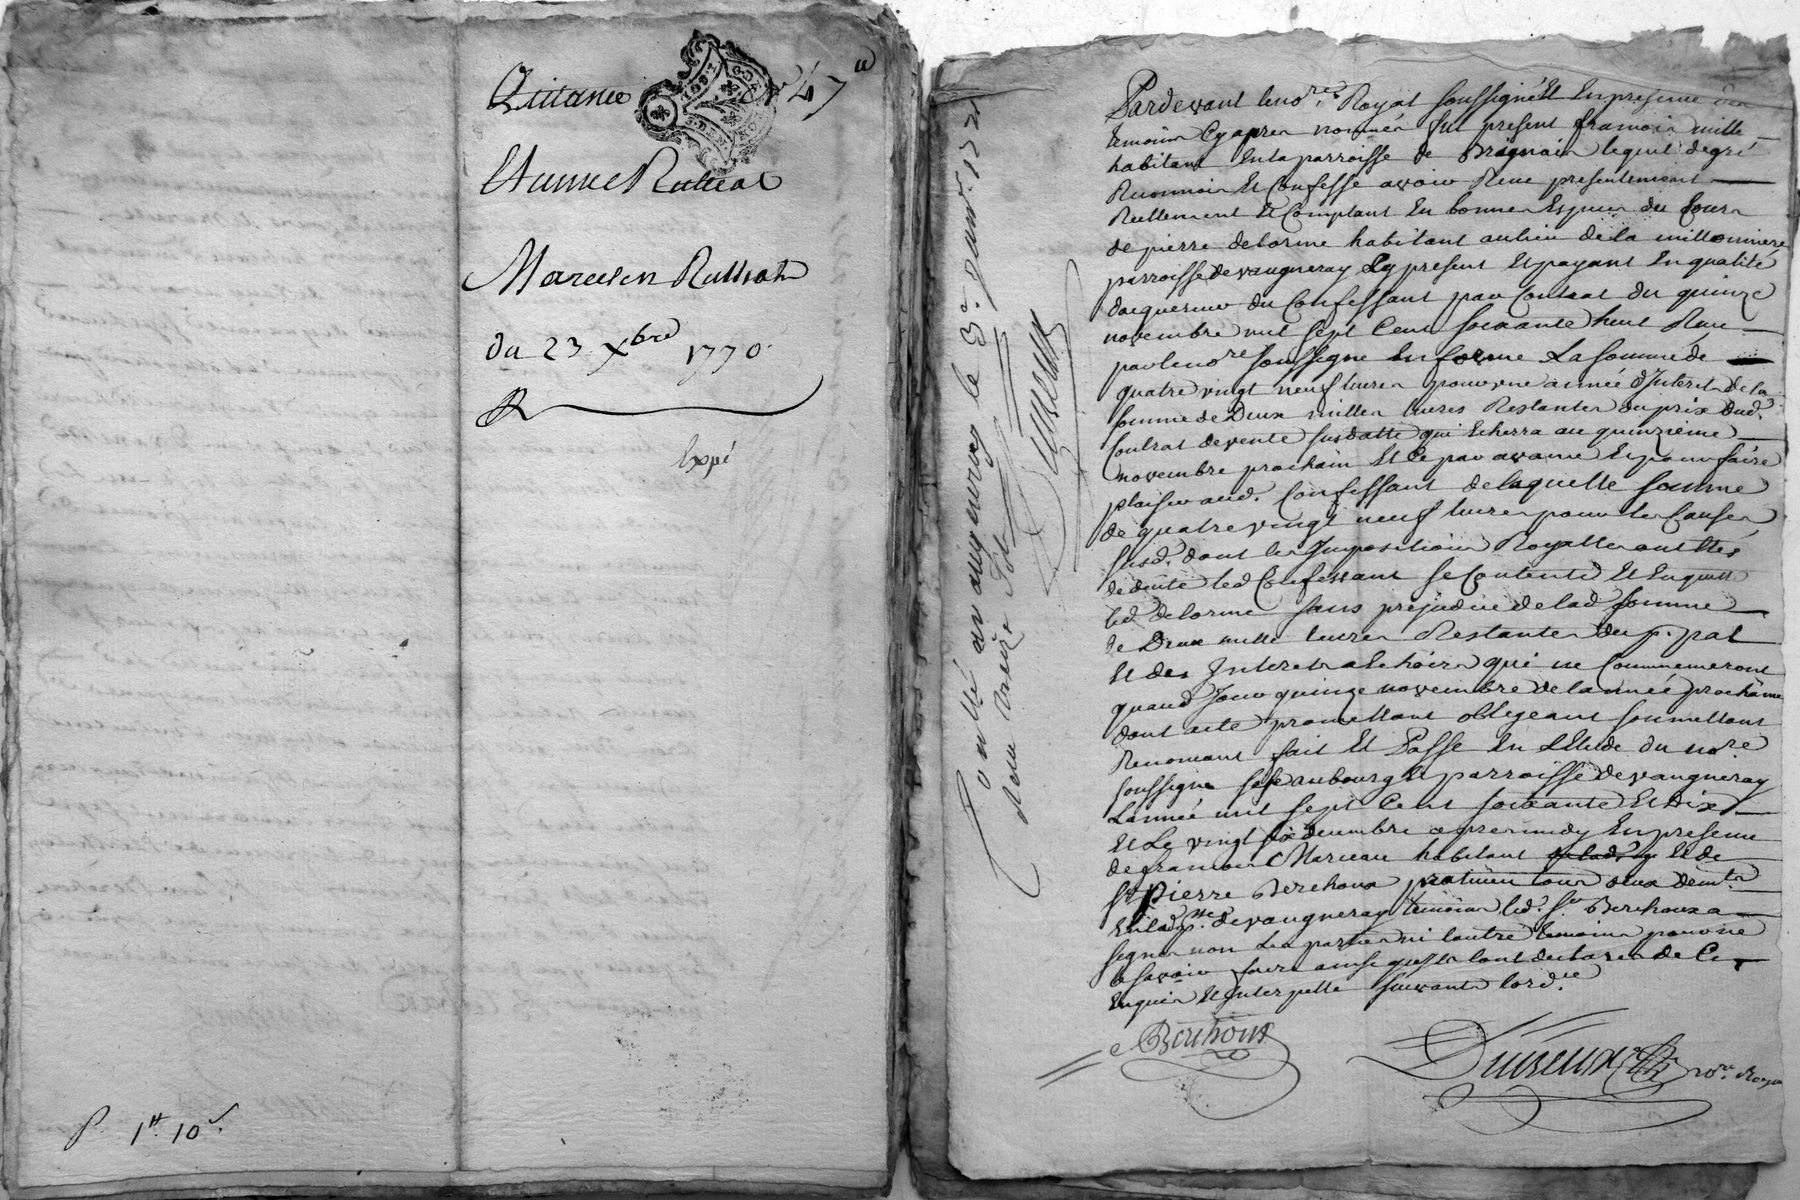 Quitance 47
Etienne Rulliat
Marcelen Rulliat
du 23 Xbre 1770
Expé
P. 1# 10s.
Controllé a vaugneray le 3e. janvr. 1771
Reçu treize sols
Duvieux
Pardevant le nore. Royal soussigné Et En presence des
temoins Cy apres nommés fut present francois mille
habitant En la parroisse de Brignais lequel de gré
Reconnoit Et Confesse avoir Receu presentement
Reellement Et Comptant En bonnes Especes du Cours
de pierre delorme habitant au lieu de la milloniere
parroisse de vaugneray Cy present Et payant En qualité
dacquereur du Confessant par Contrat du quinze
novembre mil sept Cent soixante huit Receu
par le nore soussigne En forme La somme de
quatre vingt neuf livres pour une année d'Interets de la
somme de Deux milles livres Restantes du prix dud.
Contrat de vente susdatte qui Echerra au quinzieme
novembre prochain Et Ce par avance Et pour faire
plaisir aud. Confessant de laquelle somme
de quatre vingt neuf livres pour les Causes
susd. dont les Impositions Royalles ont Etés
deduite led Confessant se Contente Et En quitte
led delorme sans prejudice de lad somme
de Deux mille livres Restantes du p.pal
Et des Interets a Echoirs qui ne Commenceront
quaud Jour quinze novembre de lannée prochaine
dont acte promettant obligeant soumettant
Renonceant fait Et Passe En L'Etude du nore
soussigne faubourg Et parroisse de vaugneray
Lannée mil sept Cent soixante Et Dix
Et Le vingt six decembre apres midy En presence
de francois Marceau habitant Et de
sr Pierre Berchoux praticien tous deux demts
En lad psse. de vaugneray temoins led. sr Berchoux a
signé non Les parties ni lautre temoin pour ne
le savoir faire ainsi quils lont declarer de Ce
Enquis Et Interpellé suivant lord.ce
Berchoux
Duvieux nore. Royal